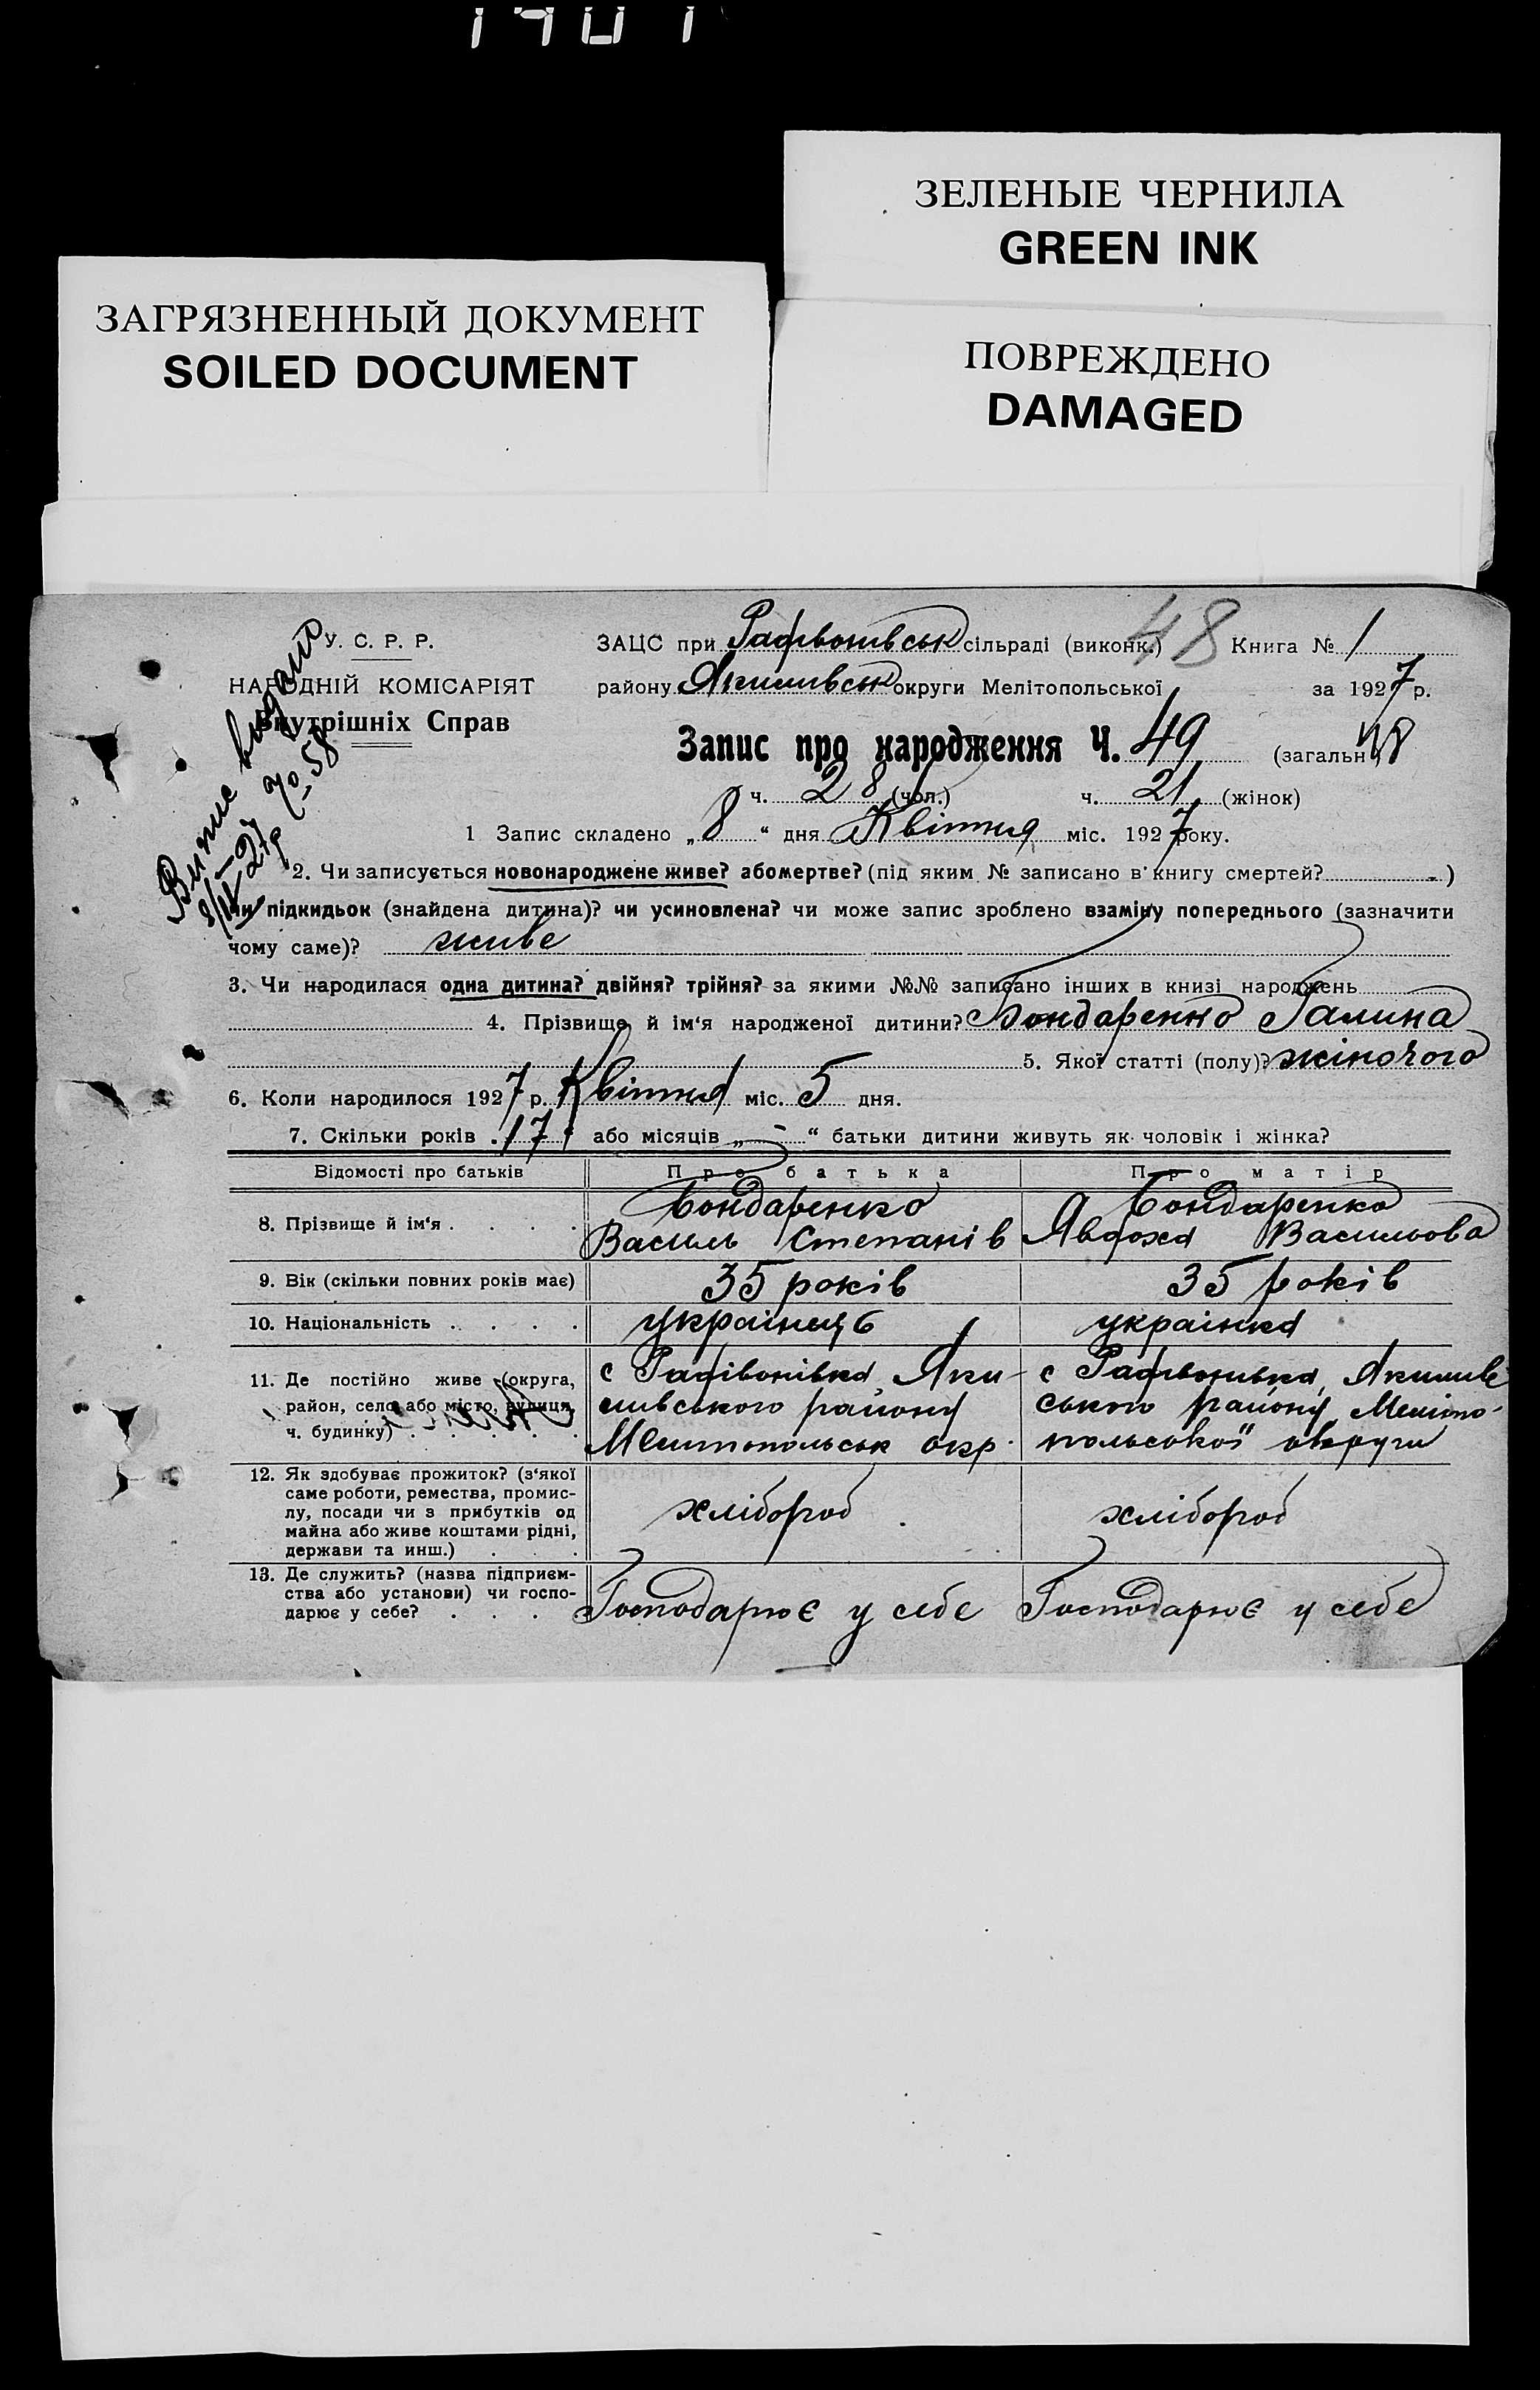 1401
ЗЕЛЕНЫЕ ЧЕРНИЛА
GREEN INK
ЗАГРЯЗНЕННЫЙ ДОКУМЕНТ
SOILED DOCUMENT
ПОВРЕЖДЕНО
DAMAGED
У. С. Р. Р.
НАРОДНІЙ КОМІСАРІЯТ
Внутрішніх Справ
Витис видано
№ 58
ЗАЦС при Рафвонівськ сільраді (виконк.) 48 Книга № 1
району Якимивськ округи Мелітопольської за 1927 р.
Запис про народження Ч. 49 (загальн 48
ч. 28 (чол.) ч. 21 (жінок)
1 Запис складено „8“ дня Квітня міс. 1927 року.
2. Чи записується новонароджене живе? або мертве? (під яким № записано в книгу смертей? - )
чи підкидьок (знайдена дитина)? чи усиновлена? чи може запис зроблено взаміну попереднього (зазначити
чому саме)? живе
3. Чи народилася одна дитина? двійня? трійня? за якими №№ записано інших в книзі народжень
4. Прізвище й ім‘я народженої дитини? Бондаренко Галина
5. Якої статті (полу)? жіночого
6. Коли народилося 1927 р. Квітня міс. 5 дня.
7. Скільки років „17“ або місяців „-“ батьки дитини живуть як чоловік і жінка?
Відомості про батьків Про батька Про матір
8. Прізвище й ім‘я . . . . Бондаренко Василь Степанів Бондаренко Явдоха Васильова
9. Вік (скільки повних років має) 35 років 35 років
10. Національність . . . . українець українка
11. Де постійно живе (округа, район, село або місто, вулиця, ч. будинку) с Рафівонівка, Якимивського району Мелитопольськ окр. с Рафвонивка, Якимивського району Мелітопольської округи
12. Як здобуває прожиток? (з‘якої саме роботи, ремества, промислу, посади чи з прибутків од майна або живе коштами рідні, держави та инш.) хлібороб хлібороб
13. Де служить? (назва підприємства або установи) чи господарює у себе? Господарює у себе Господарює у себе